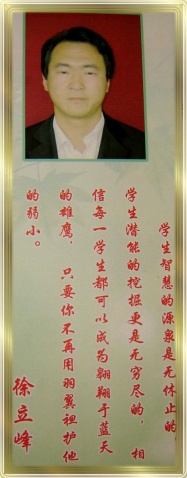 学生智慧的源泉是无休止的
学生潜能的挖掘更是无穷尽的，相
信每一学生都可以成为翱翔于蓝天
的雄鹰，只要你不再用羽翼袒护他
的弱小。
徐立峰